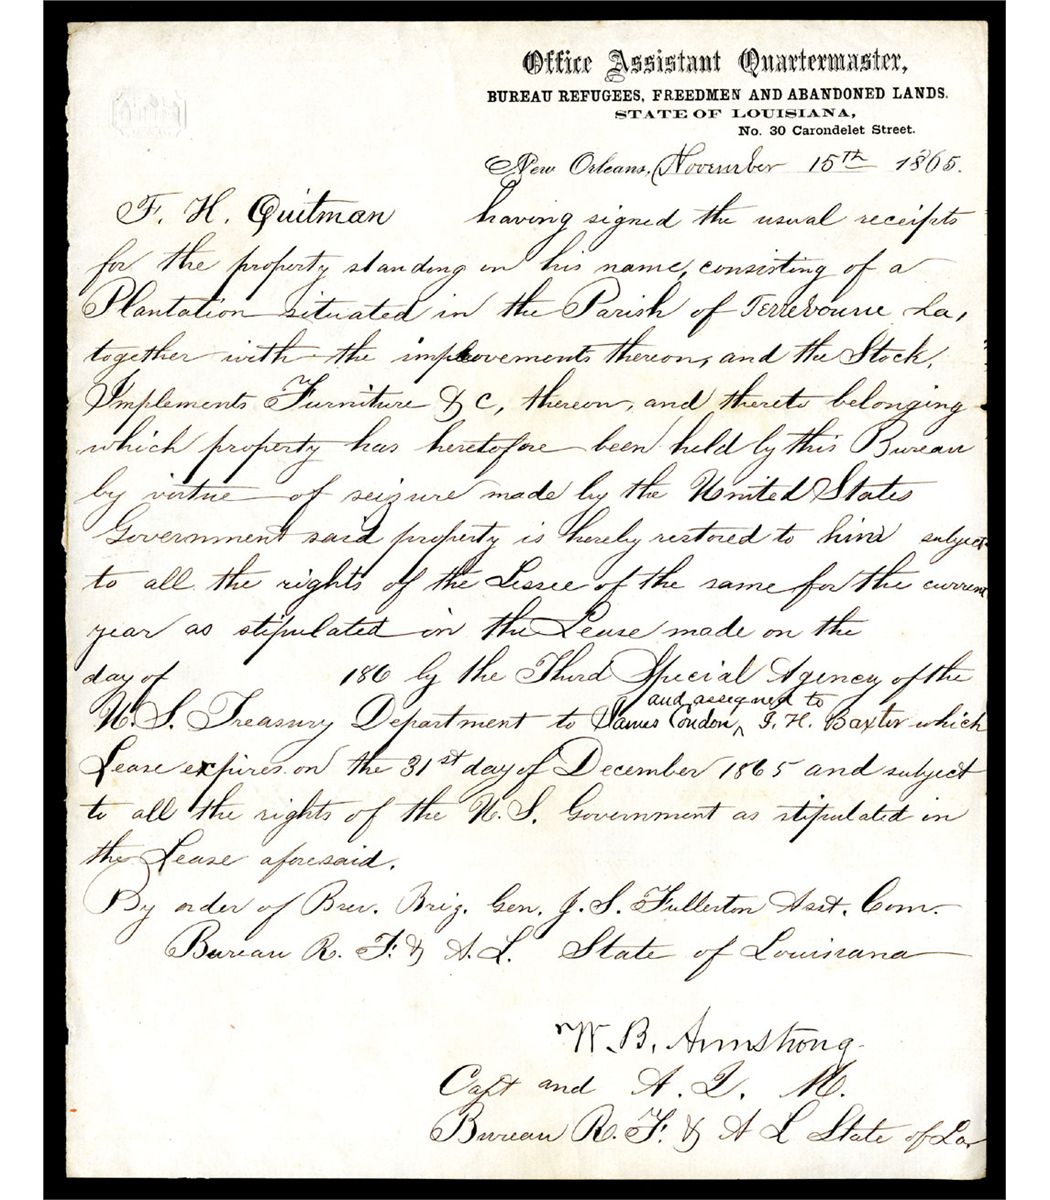 Office Assistant Quartermaster,
BUREAU REFUGEES, FREEDMEN AND ABANDONED LANDS.
STATE OF LOUISIANA,
No. 30 Carondelet Street.
New Orleans, November 15th 1865.
F. H. Quitman having signed the usual receipts
for the property standing in his name, consisting of a
Plantation situated in the Parish of Terrebonne La,
together with the improvements thereon, and the Stock,
Implements Furniture & C, thereon, and thereto belonging
which property has heretofore been held by this Bureau
by virtue of seizure made by the United States
Government said property is hereby restored to him subject
to all the rights of the Lessee of the same for the current
year as stipulated in the Lease made on the
day of 186 by the Third Special Agency of the
and assigned to
U. S. Treasury Department to James Condon ^ G. H. Baxter which
Lease expires on the 31st day of December 1865 and subject
to all the rights of the U. S. Government as stipulated in
the Lease aforesaid.
By order of Brev. Brig. Gen. J. S. Fullerton Asst. Com.
Bureau R. F. & A. L. State of Louisiana
W. B. Armstrong
Capt and A. Q. M.
Bureau R. F. & A L State of La,